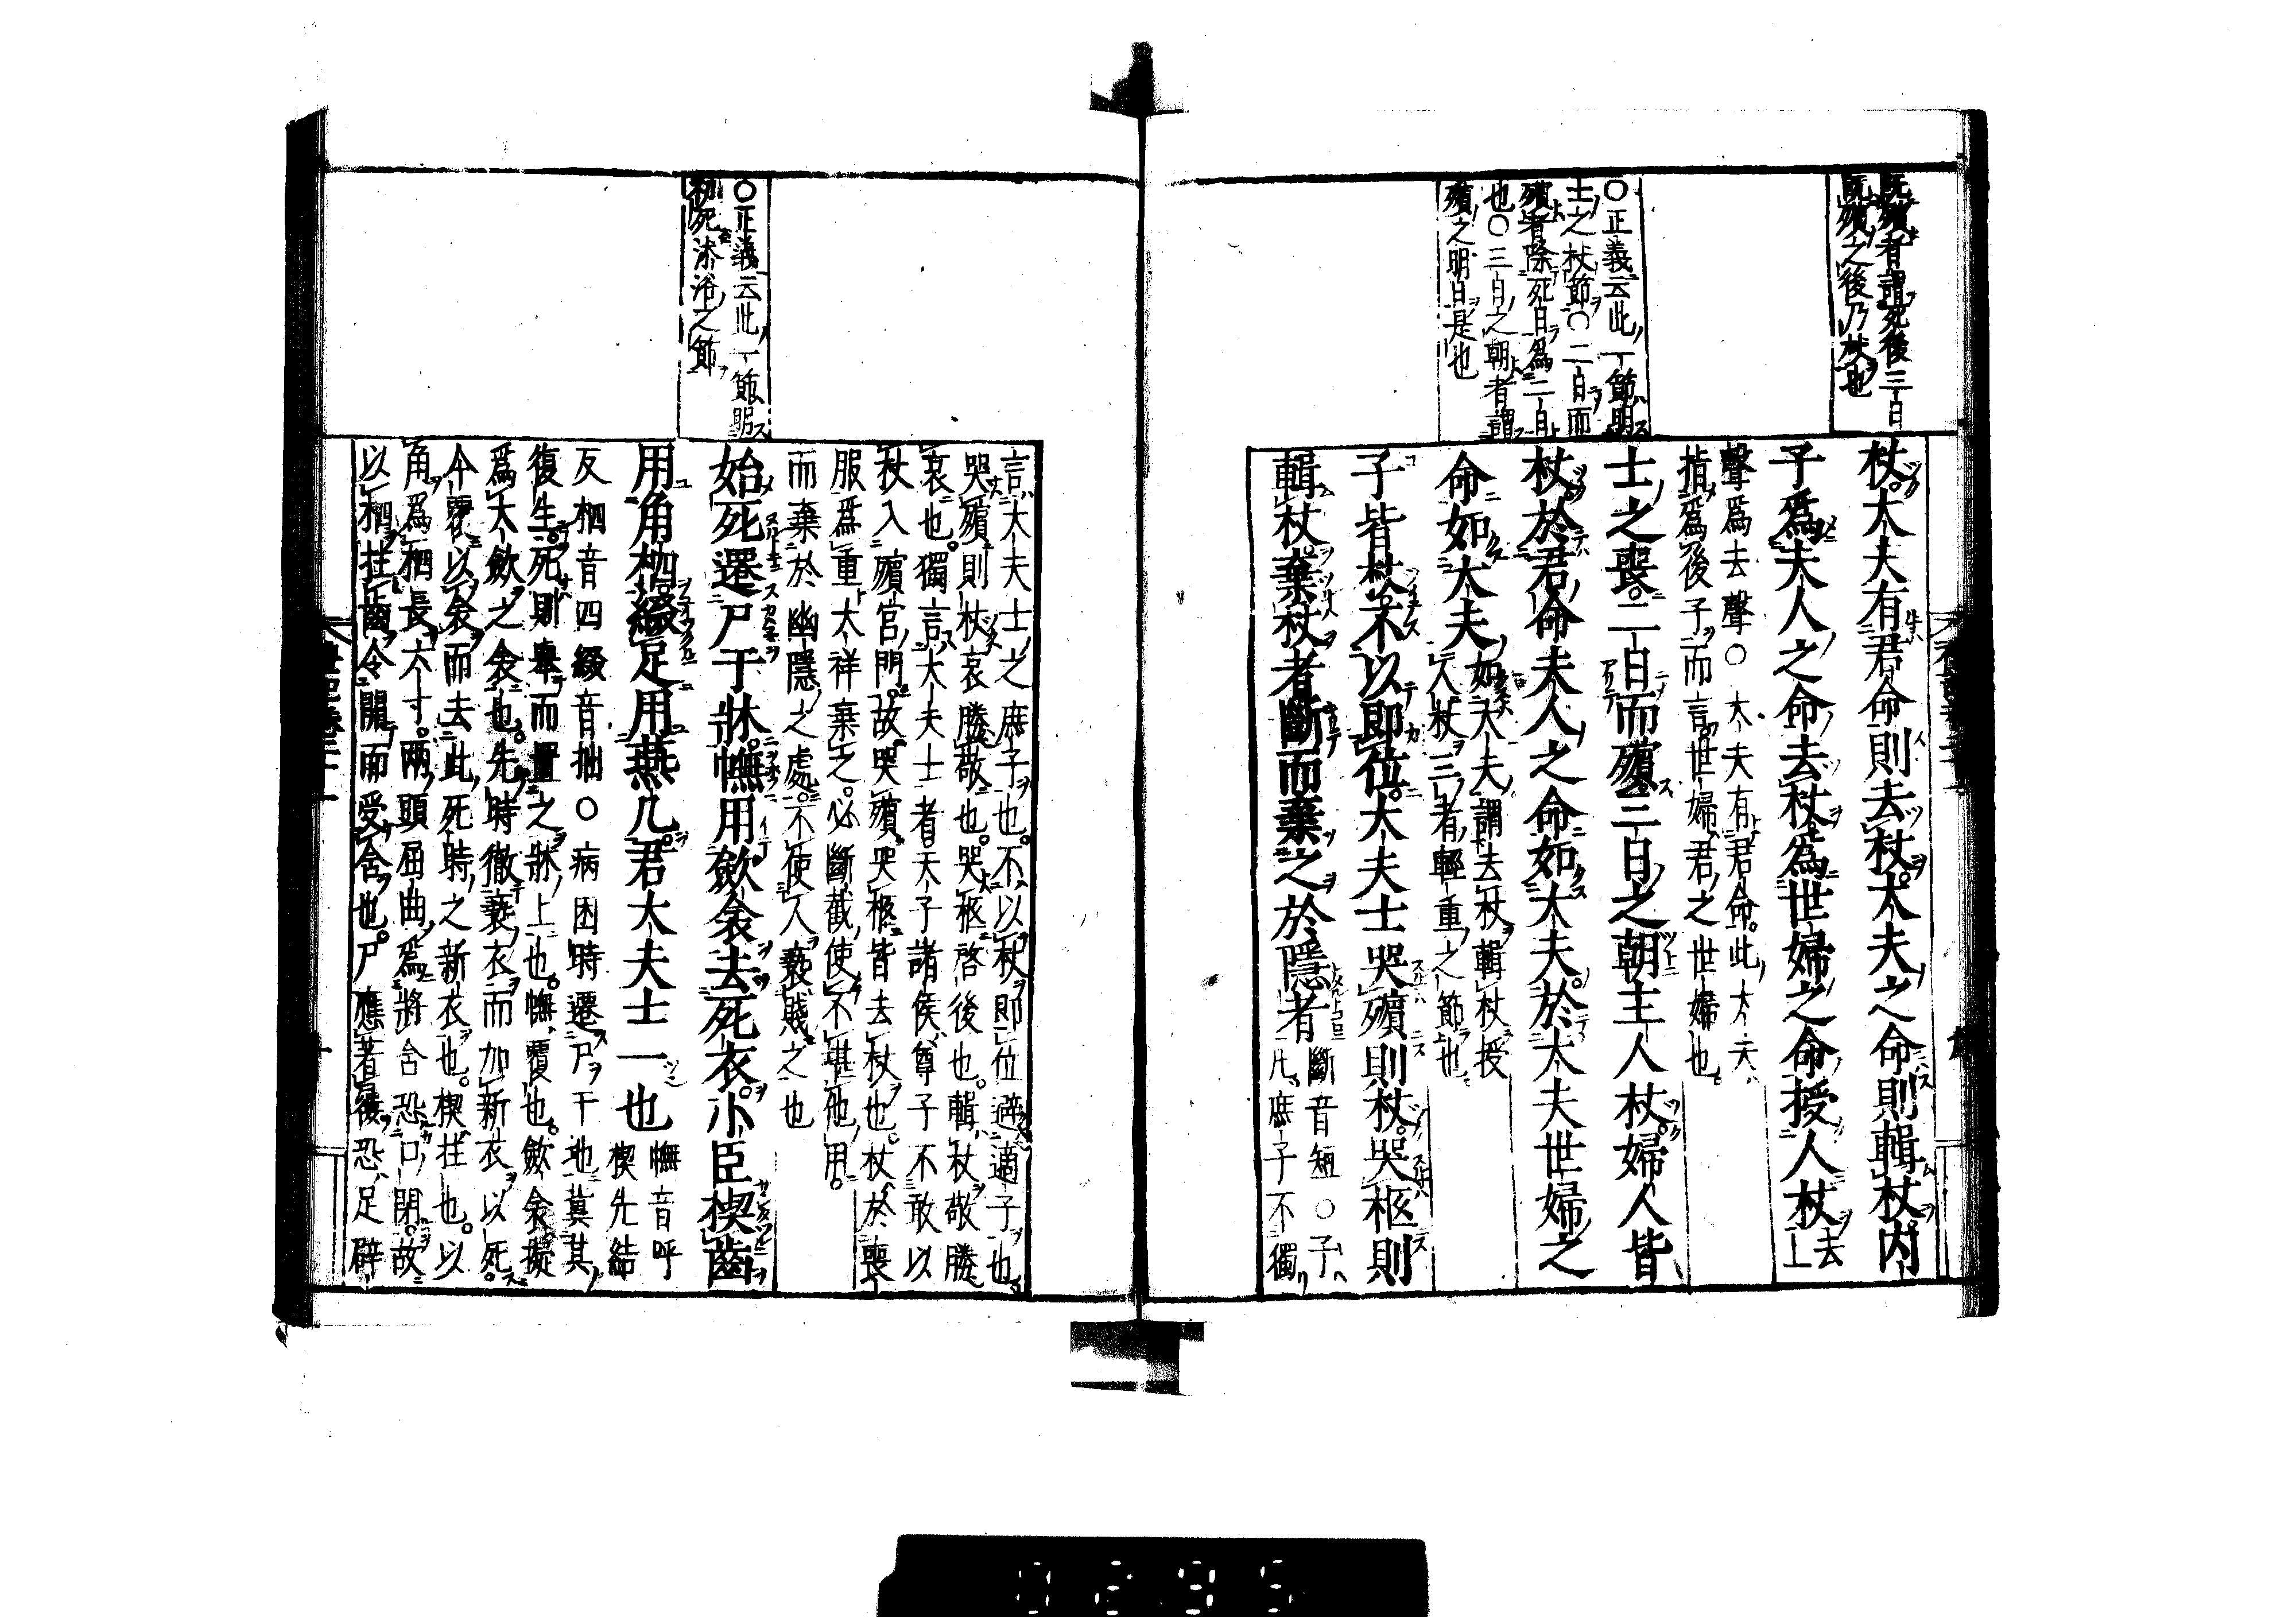 既殯者謂死後三日
既殯之後乃杖也
杖大夫有君命則去杖大夫之命則輯杖内
子爲夫人之命去杖爲世婦之命授人杖 去上
聲爲去聲○大夫有君命此大夫
指爲後子而言世婦君之世婦也
○正義云此一節明
士之杖節○二日而
殯者除死日爲二日
也○三日之朝者謂
殯之明日是也
士之喪二日而殯三日之朝主人杖婦人皆
杖於君命夫人之命如大夫於大夫世婦之
命如大夫 如大夫謂去杖輯杖授
人杖三者輕重之節也
子皆杖不以即位大夫士哭殯則杖哭柩則
輯杖棄杖者斷而棄之於隱者 斷音短○子
凡庶子不獨
言大夫士之庶子也不以杖即位避適子也
哭殯則杖哀勝敬也哭柩啓後也輯杖敬勝
哀也獨言大夫士者天子諸侯尊子不敢以
杖入殯宮門故哭殯哭柩皆去杖也杖於喪
服爲重大祥棄之必斷截使不堪他用
而棄於幽隱之處不使人褻賤之也
○正義云此一節明
初死沐浴之節
始死遷尸于牀幠用歛衾去死衣小臣楔齒
用角柶綴足用燕几君大夫士一也 幠音呼
楔先結
反柶音四綴音拙○病困時遷尸于地冀其
復生死則舉而置之牀上也幠覆也歛衾擬
爲大歛之衾也先時徹褻衣而加新衣以死
今覆以衾而去此死時之新衣也楔拄也以
角爲柶長六寸兩頭屈曲爲將含恐口閉故
以柶拄齒令開而受含也尸應著屨恐足辟